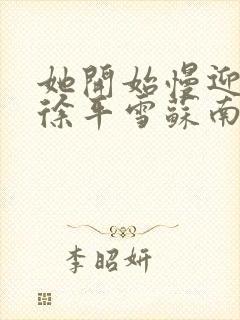 她開始慢迎
徐平雪蘇南
李昭妍